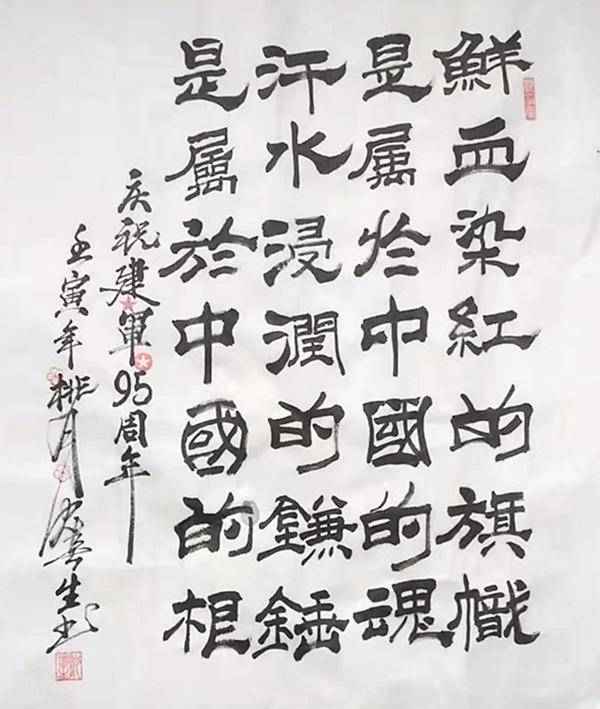 鮮血染红的旗幟
是属於中國的魂
汗水浸潤的鐮錘
是属於中國的根
庆祝建軍95周年
壬寅年桃月